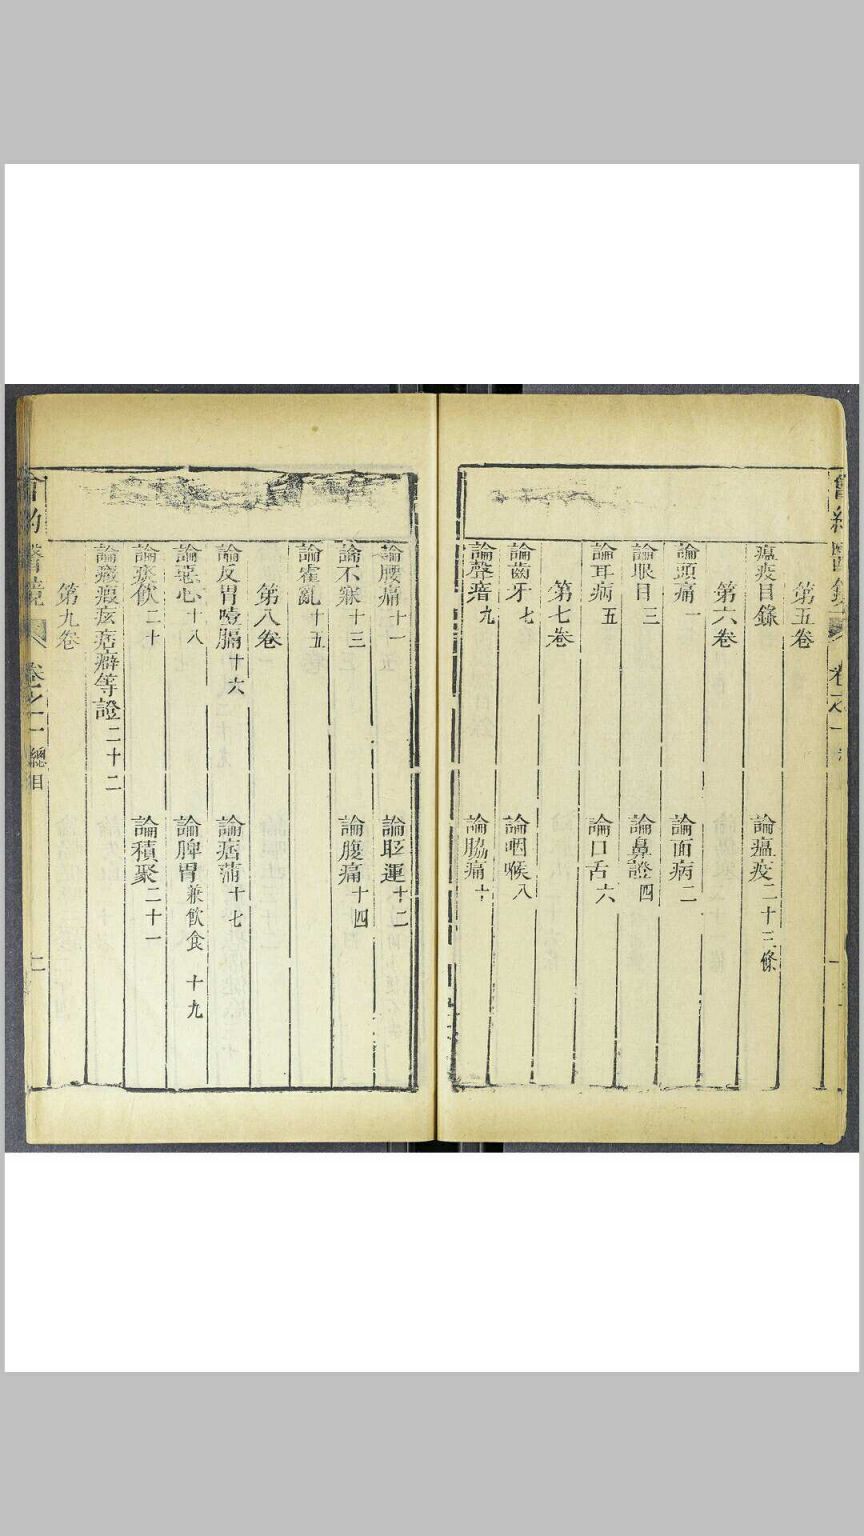 第五卷
瘟疫目錄　論瘟疫二十三條
第六卷
論頭痛一　論面病二
論眼目三　論鼻證四
論耳病五　論口舌六
第七卷
論齒牙七　論咽喉八
論聲瘖九　論脇痛十
論腰痛十一　論眩運十二
論不寐十三　論腹痛十四
論霍亂十五
第八卷
論反胃噎膈十六　論痞滿十七
論惡心十八　論脾胃兼飲食　十九
論痰飲二十　論積聚二十一
論癥瘕痃痞癖等證二十二
第九卷
會約醫鏡　卷之一　總目　二